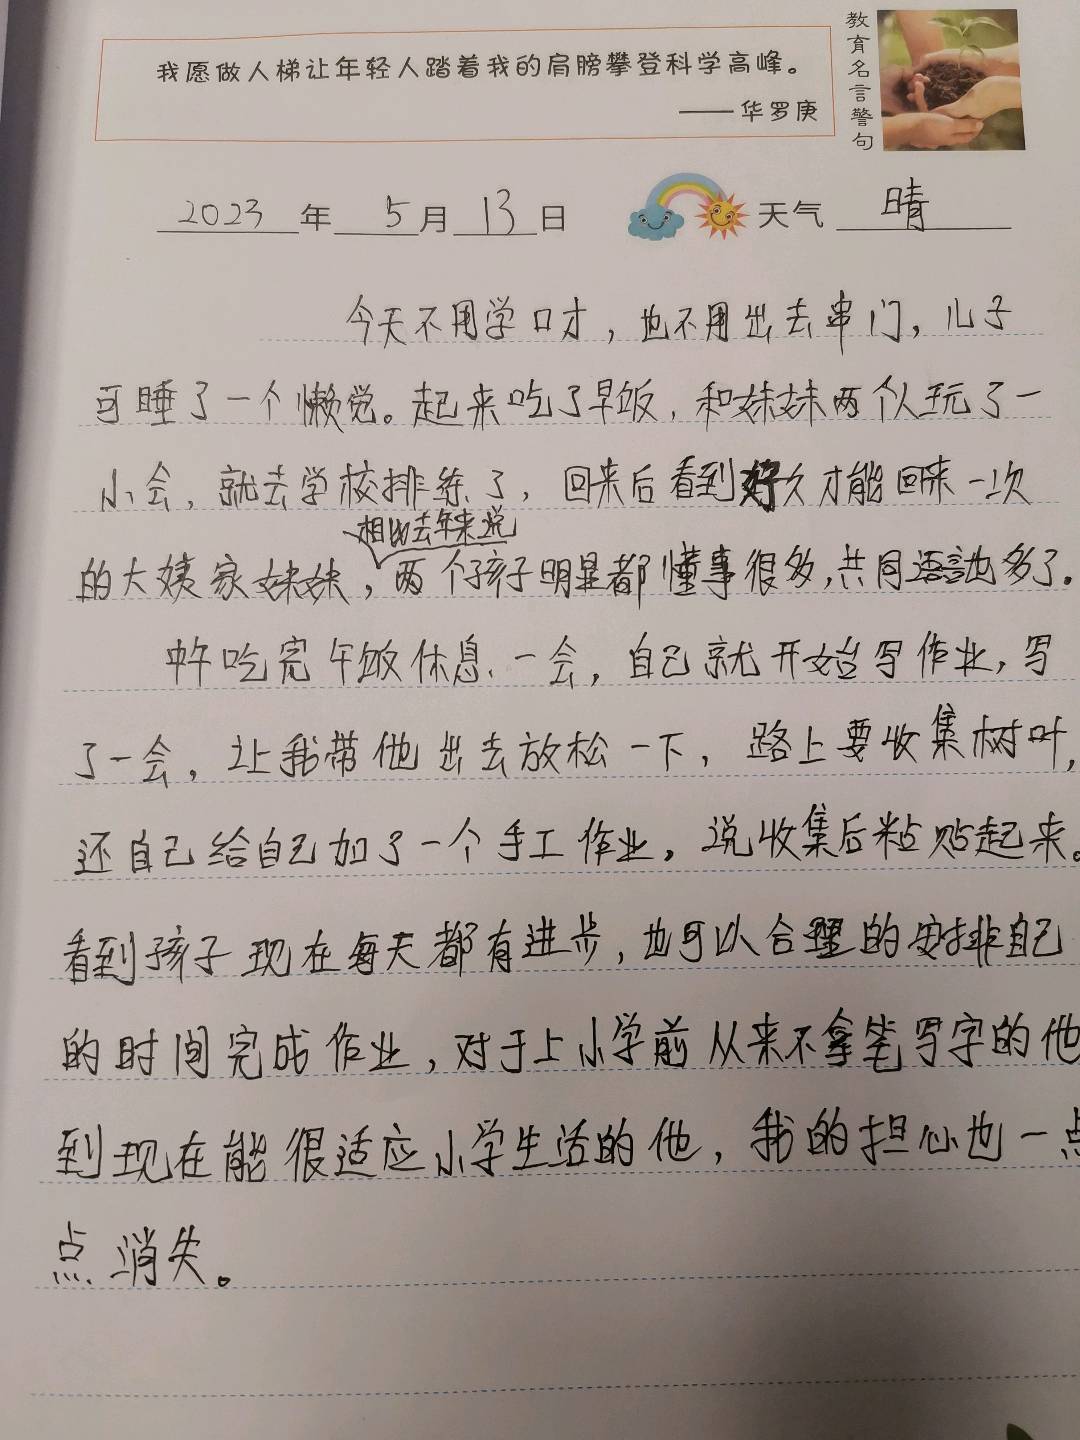 我愿做人梯让年轻人踏着我的肩膀攀登科学高峰。
——华罗庚
教育名言警句
2023年5月13日 天气 晴
今天不用学口才，也不用出去串门，儿子
可睡了一个懒觉。起来吃了早饭，和妹妹两个人玩了一
小会，就去学校排练了，回来后看到好久才能回来一次
相比去年来说
的大姨家妹妹，两个孩子明显都懂事很多，共同语言也多了。
吃完午饭休息一会，自己就开始写作业，写
了一会，让我带他出去放松一下，路上要收集树叶，
还自己给自己加了一个手工作业，说收集后粘贴起来。
看到孩子现在每天都有进步，也可以合理的安排自己
的时间完成作业，对于上小学前从来不拿笔写字的他
到现在能很适应小学生活的他，我的担心也一点
点消失。